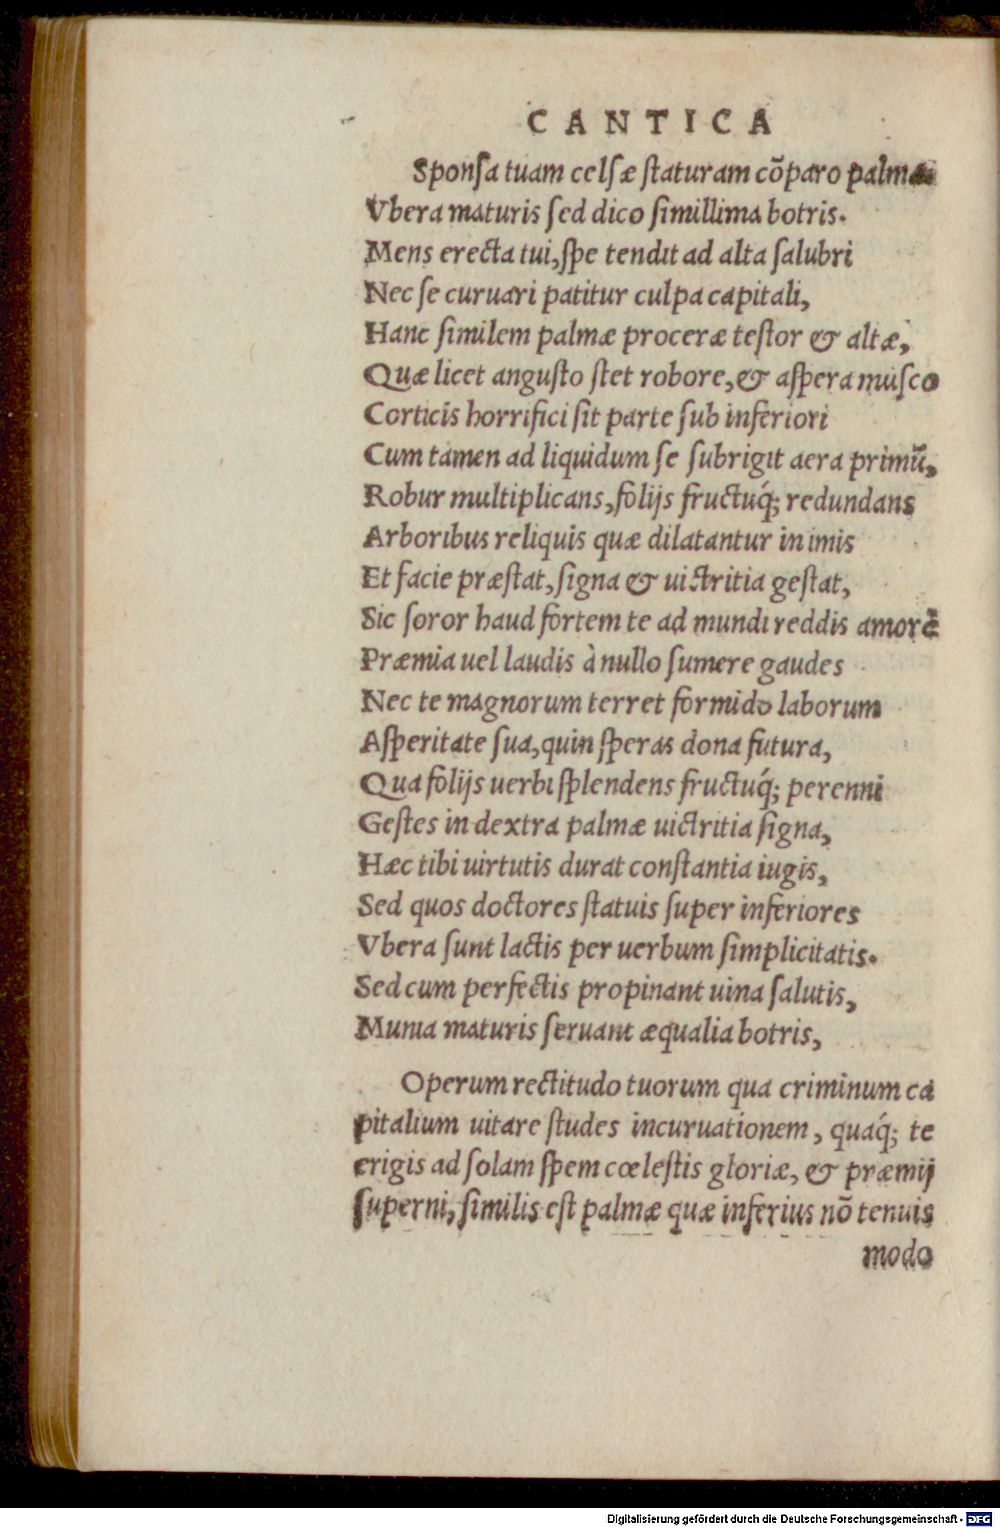 CANTICA
Sponſa tuam celſæ ſtaturam cõparo palmæ
Vbera maturis ſed dico ſimillima botris.
Mens erecta tui, ſpe tendit ad alta ſalubri
Nec ſe curuari patitur culpa capitali,
Hanc ſimilem palmæ proceræ teſtor & altæ,
Quæ licet anguſto ſtet robore, & aſpera muſco
Corticis horrifici ſit parte ſub inferiori
Cum tamen ad liquidum ſe ſubrigit aera primũ,
Robur multiplicans, folijs fructuq́; redundans
Arboribus reliquis quæ dilatantur in imis
Et facie præſtat, ſigna & uictritia geſtat,
Sic ſoror haud fortem te ad mundi reddis amorẽ
Præmia uel laudis à nullo ſumere gaudes
Nec te magnorum terret formido laborum
Aſperitate ſua, quin ſperas dona futura,
Qua folijs uerbi ſplendens fructuq́; perenni
Geſtes in dextra palmæ uictritia ſigna,
Hæc tibi uirtutis durat conſtantia iugis,
Sed quos doctores ſtatuis ſuper inferiores
Vbera ſunt lactis per uerbum ſimplicitatis.
Sed cum perfectis propinant uina ſalutis,
Munia maturis ſeruant æqualia botris,
Operum rectitudo tuorum qua criminum ca
pitalium uitare ſtudes incuruationem, quaq́; te
erigis ad ſolam ſpem cœleſtis gloriæ, & præmij
ſuperni, ſimilis eſt palmæ quæ inferius nõ tenuis
modo
Digitalisierung gefördert durch die Deutsche Forschungsgemeinschaft - DFG